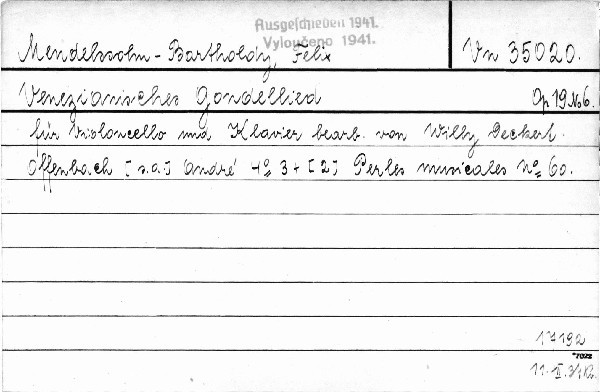 Ausgeschieden 1941.
Vyloučeno 1941.
Mendelssohn-Bartholdy, Felix Vn 35020.
Venezianisches Gondellied Op 19 No 6.
für Violoncello und Klavier bearb. von Willy Deckert.
Offenbach [s.a.] André 4º 3 + [2] Perles musicales Nº 60.
17192
*7022
11. II. 31